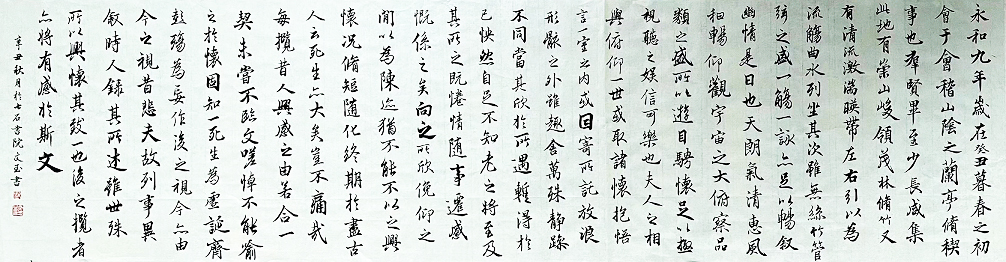 永和九年歲在癸丑暮春之初
會于會稽山陰之蘭亭脩稧
事也羣賢畢至少長咸集
此地有崇山峻領茂林脩竹又
有清流激湍暎帶左右引以為
流觴曲水列坐其次雖無絲竹管
弦之盛一觴一詠亦足以暢敘
幽情是日也天朗氣清惠風
和暢仰觀宇宙之大俯察品
類之盛所以遊目騁懷足以極
視聽之娛信可樂也夫人之相
與俯仰一世或取諸懷抱悟
言一室之內或因寄所託放浪
形骸之外雖趣舍萬殊靜躁
不同當其欣於所遇暫得於
己怏然自足不知老之將至及
其所之既惓情隨事遷感
慨係之矣向之所欣俛仰之
閒以為陳迹猶不能不以之興
懷況脩短隨化終期於盡古
人云死生亦大矣豈不痛哉
每攬昔人興感之由若合一
契未嘗不臨文嗟悼不能喻
之於懷固知一死生為虛誕齊
彭殤為妄作後之視今亦由
今之視昔悲夫故列事異
敘時人錄其所述雖世殊
所以興懷其致一也後之攬者
亦將有感於斯文
辛丑秋月於石書院文玉書